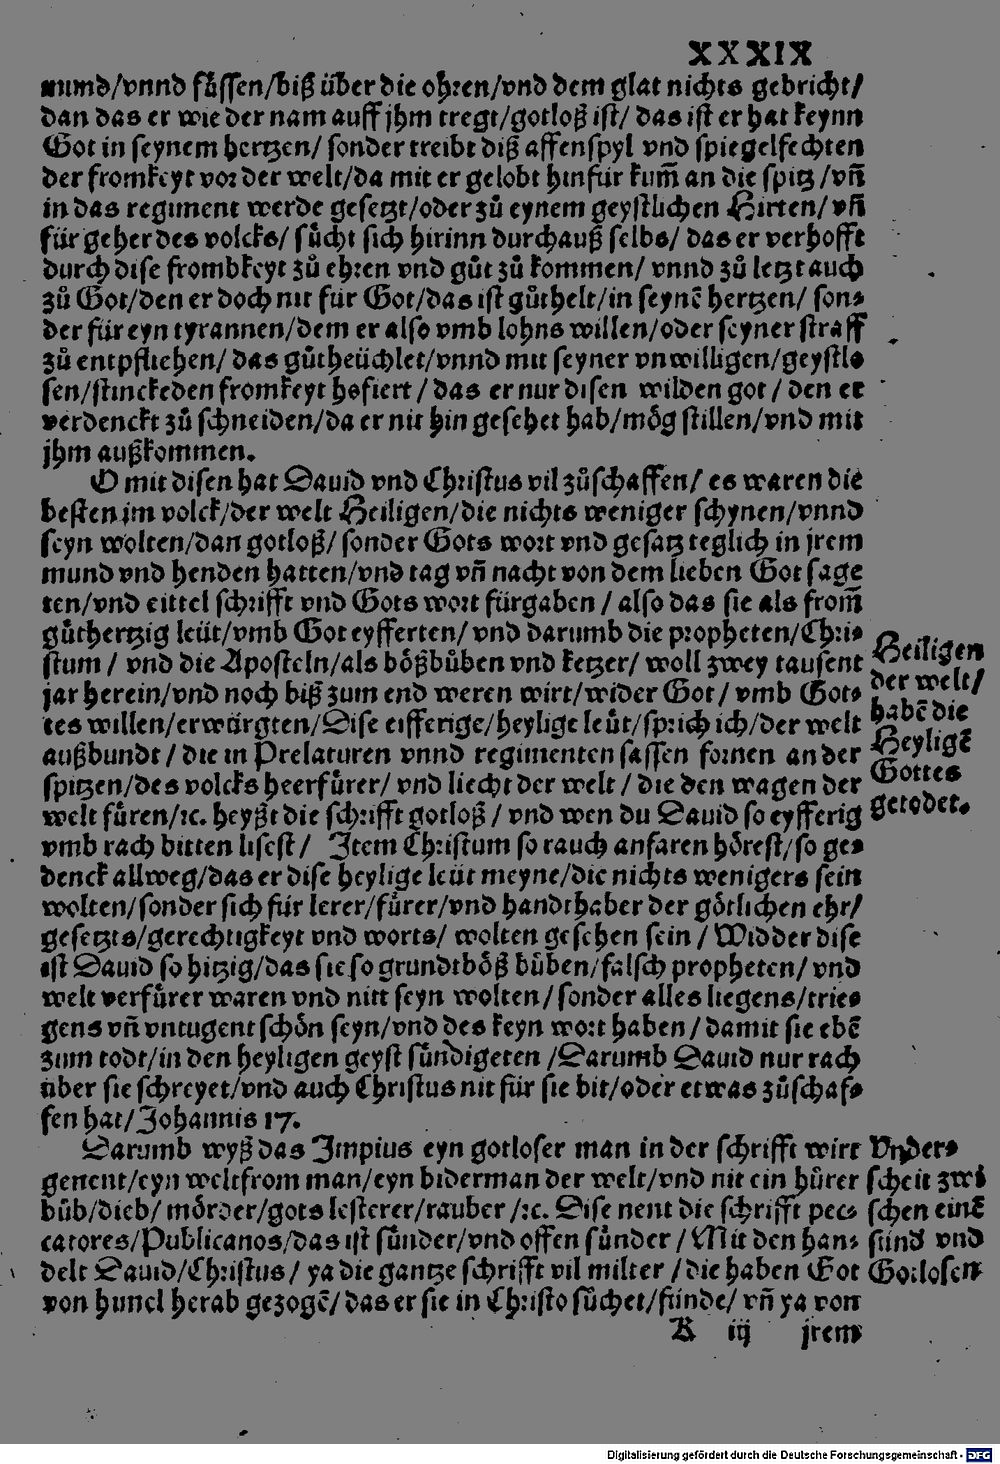 XXXIX
mund/vnnd füssen/biß über die ohren/vnd dem glat nichts gebricht/
dan das er wie der nam auff jhm tregt/gotloß ist/ das ist er hat keynn
Got in seynem hertzen/ sonder treibt diß affenspyl vnd spiegelfechten
der fromkeyt vor der welt/da mit er gelobt hinfür kum̃ an die spitz/vñ
in das regiment werde gesetzt/oder zů eynem geystlichen Hirten/ vñ
für geher des volcks/ sůcht sich hirinn durchauß selbs/ das er verhofft
durch dise frombkeyt zů ehren vnd gůt zů kommen/ vnnd zů letzt auch
zů Got/den er doch nit für Got/das ist gůt helt/in seynẽ hertzen/ son⸗
der für eyn tyrannen/dem er also vmb lohns willen/oder seyner straff
zů entpfliehen/ das gůt heüchlet/vnnd mit seyner vnwilligen/geystlo
sen/stinckeden fromkeyt hofiert / das er nur disen wilden got / den er
verdenckt zů schneiden/da er nit hin gesehet hab/mög stillen/vnd mit
jhm außkommen.
O mit disen hat Dauid vnd Christus vil zůschaffen/ es waren die
besten jm volck/der welt Heiligen/die nichts weniger schynen/vnnd
seyn wolten/dan gotloß/ sonder Gots wort vnd gesatz teglich in jrem
mund vnd henden hatten/vnd tag vñ nacht von dem lieben Got sage
ten/vnd eittel schrifft vnd Gots wort fürgaben / also das sie als from̃
gůthertzig leüt/vmb Got eyfferten/ vnd darumb die propheten/Chri⸗
stum / vnd die Aposteln/als bößbůben vnd ketzer/ woll zwey tausent
jar herein/vnd noch biß zum end weren wirt/wider Got / vmb Got⸗
tes willen/erwürgten/Dise eifferige/heylige leüt/sprich ich/der welt
außbundt / die in Prelaturen vnnd regimenten sassen fornen an der
spitzen/des volcks heerfürer/ vnd liecht der welt / die den wagen der
welt füren/ꝛc. heyßt die schrifft gotloß / vnd wen du Dauid so eyfferig
vmb rach bitten lisest / Item Christum so rauch anfaren hörest/so ge⸗
denck allweg/das er dise heylige leüt meyne/die nichts wenigers sein
wolten/sonder sich für lerer/fürer/vnd handthaber der götlichen ehr/
gesetzts/gerechtigkeyt vnd worts/ wolten gesehen sein / Widder dise
ist Dauid so hitzig/das sie so grundtböß bůben/falsch propheten/ vnd
welt verfürer waren vnd nitt seyn wolten/sonder alles liegens/trie⸗
gens vñ vntugent schön seyn/vnd des keyn wort haben / damit sie ebẽ
zum todt/in den heyligen geyst sündigeten /Darumb Dauid nur rach
über sie schreyet/vnd auch Christus nit für sie bit/oder etwas zůschaf⸗
fen hat/Johannis 17.
Darumb wyß das Impius eyn gotloser man in der schrifft wirt
genent/eyn weltfrom man/eyn biderman der welt/vnd nit ein hůrer
bůb/dieb/ mörder/gots lesterer/rauber /ꝛc. Dise nent die schrifft pec⸗
catores/Publicanos/das ist sünder/vnd offen sünder / Mit den han⸗
delt Dauid/Christus/ ya die gantze schrifft vil milter / die haben Got
von himel herab gezogẽ/das er sie in Christo sůchet/finde/ vñ ya von
K iij jrem
Heiligen
der welt/
habẽ die
Heyligẽ
Gottes
getödet.
Vnder⸗
scheit zwi
schen einẽ
sünd vnd
Gotlosen
Digitalisierung gefördert durch die Deutsche Forschungsgemeinschaft - DFG